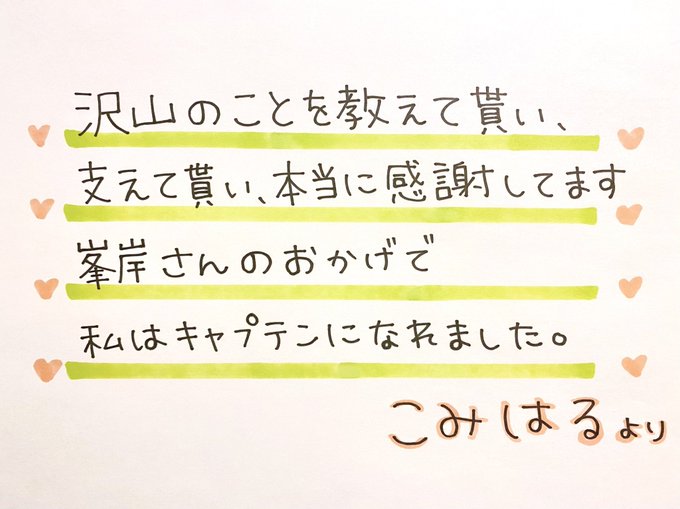 沢山のことを教えて貰い、
支えて貰い、本当に感謝してます
峯岸さんのおかげで
私はキャプテンになれました。
こみはるより